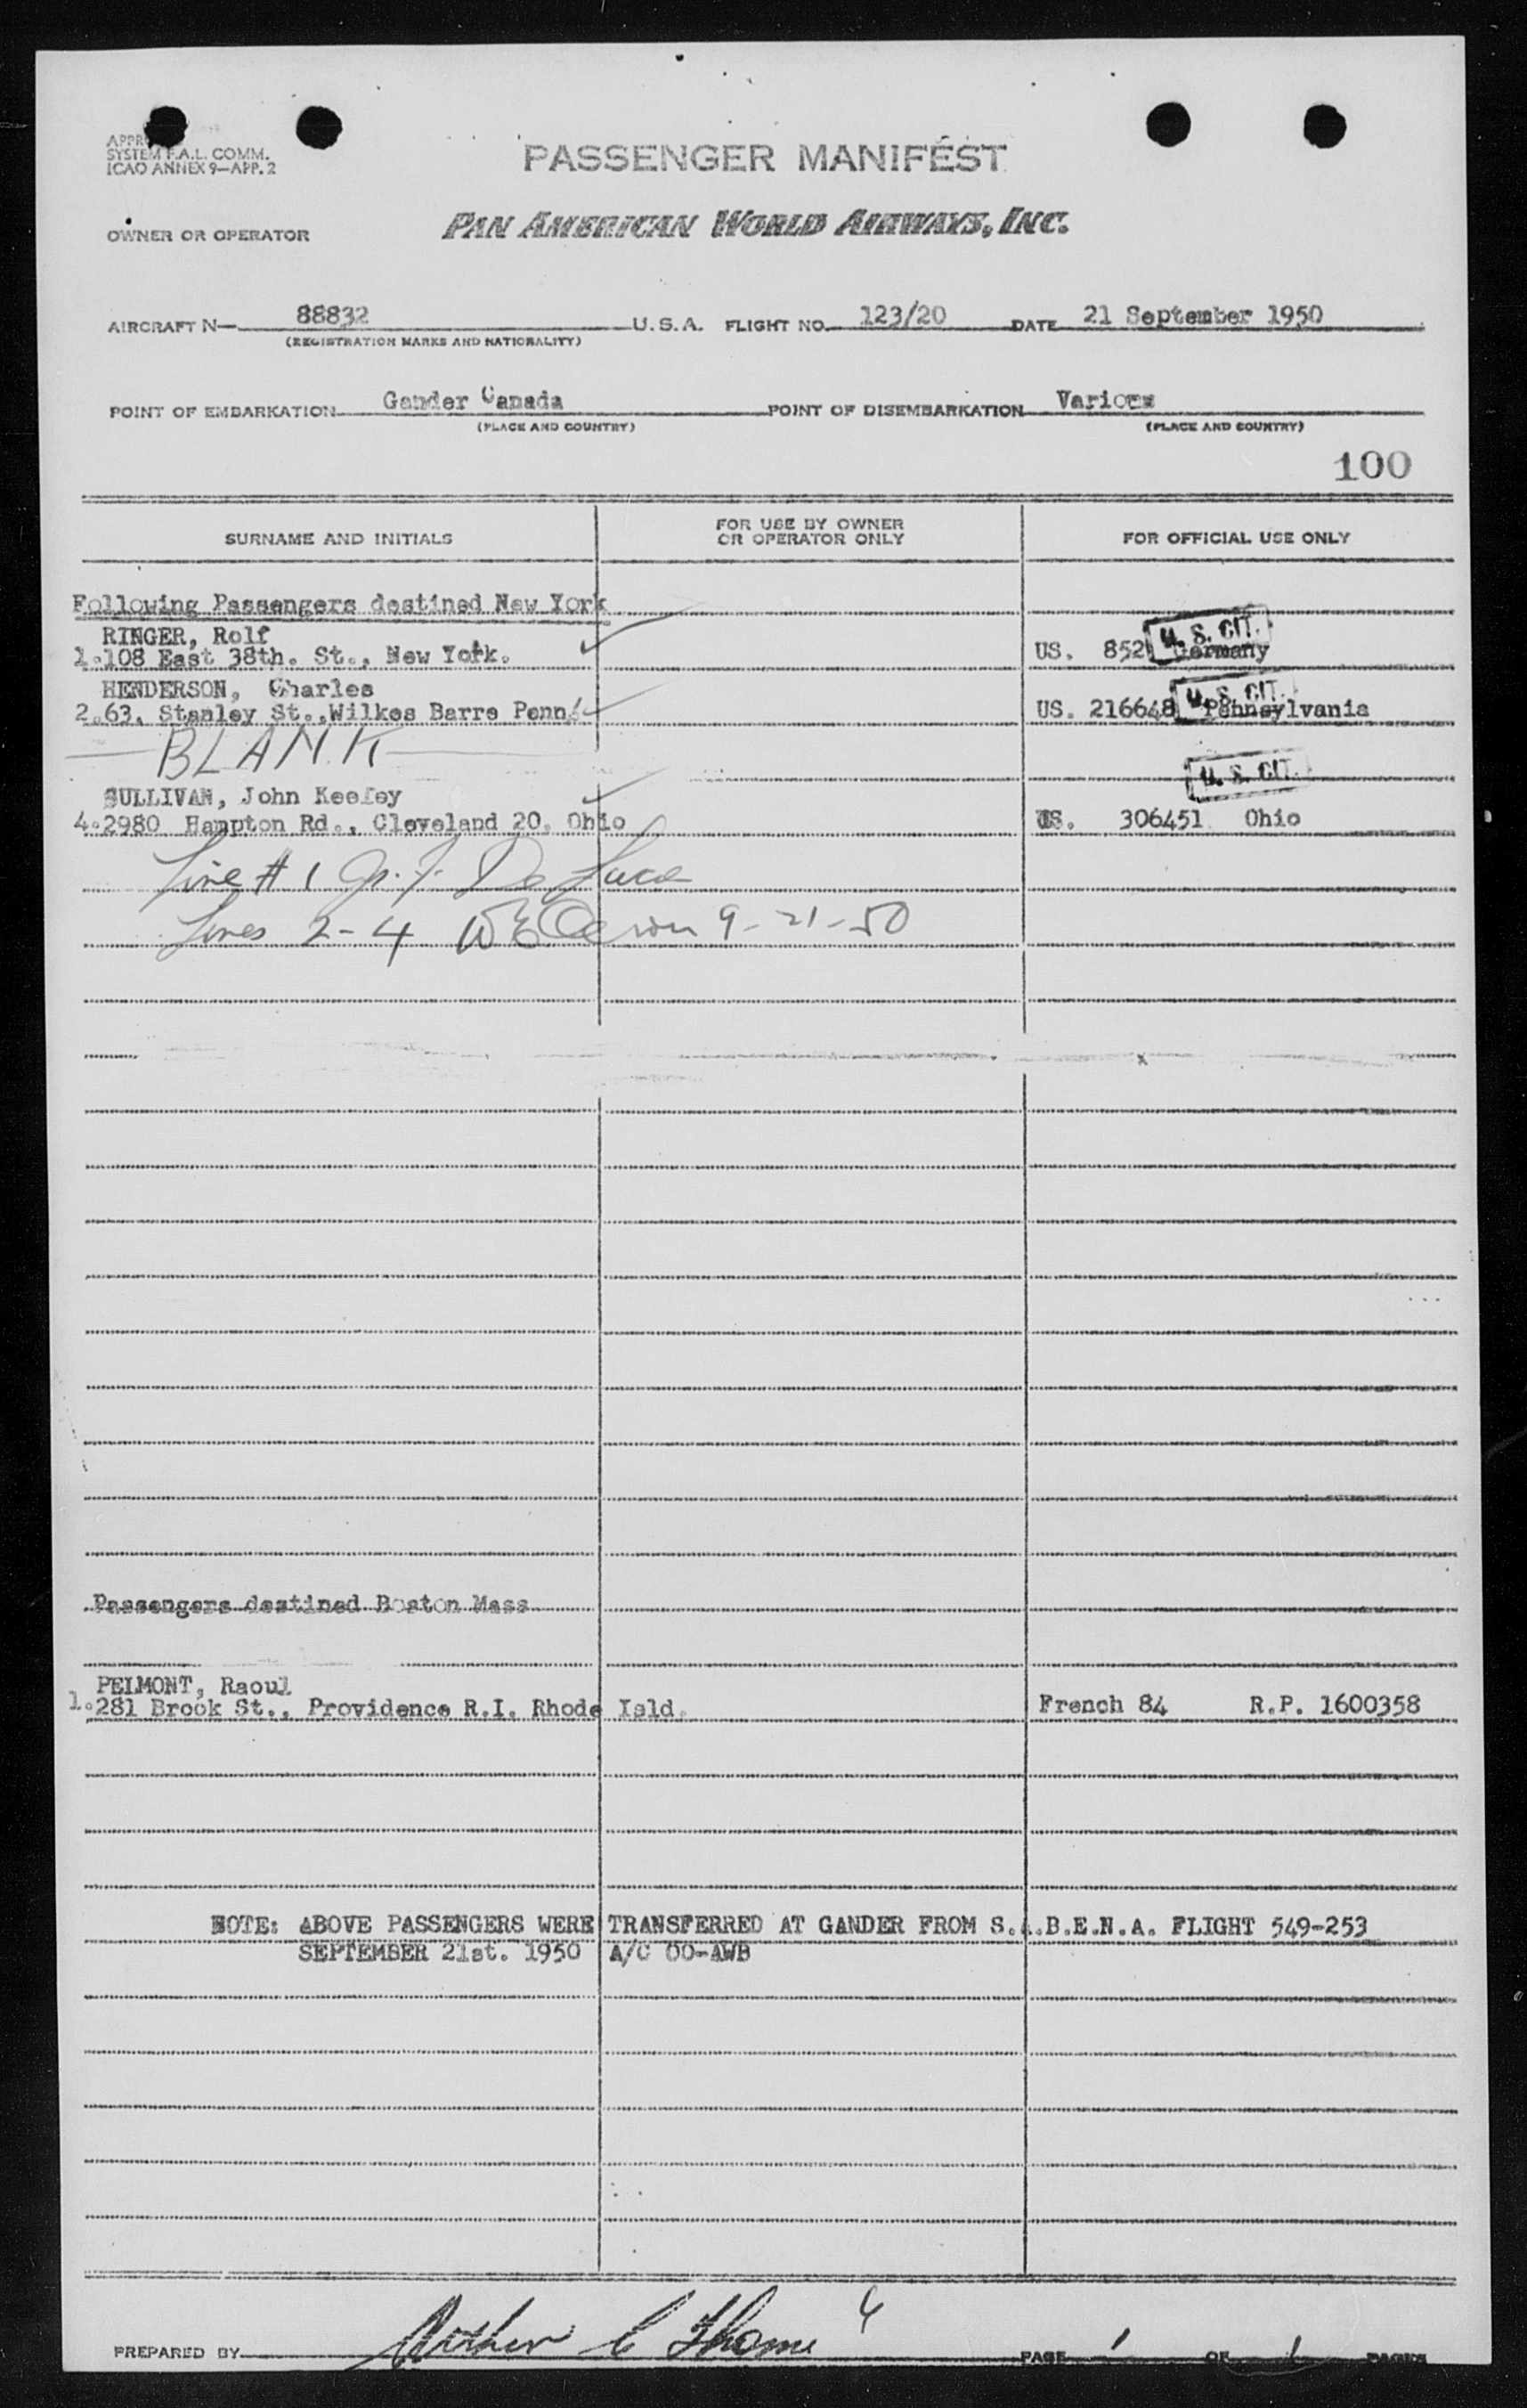 SYSTEM F.A.L. COMM.
ICAO ANNEX 9—APP. 2
PASSENGER MANIFEST
OWNER OR OPERATOR PAN AMERICAN WORLD AIRWAYS, INC.
AIRCRAFT N— 88832 U.S.A. FLIGHT NO. 123/20 DATE 21 September 1950
(REGISTRATION MARKS AND NATIONALITY)
POINT OF EMBARKATION Gander Canada POINT OF DISEMBARKATION Various
(PLACE AND COUNTRY) (PLACE AND COUNTRY)
100
SURNAME AND INITIALS FOR USE BY OWNER OR OPERATOR ONLY FOR OFFICIAL USE ONLY
Following Passengers destined New York
RINGER, Rolf U. S. CIT.
1.108 East 38th. St., New York. US. 852 Germany
HENDERSON, Charles U. S. CIT.
2.63. Stanley St.,Wilkes Barre Penn. US. 216648 Pennsylvania
BLANK
U. S. CIT.
SULLIVAN, John Keefey
4.2980 Hampton Rd., Cleveland 20. Ohio US. 306451 Ohio
Line # 1
Lines 2-4 9-21-50
Passengers destined Boston Mass
PELMONT, Raoul
1.281 Brook St., Providence R.I. Rhode Isld. French 84 R.P. 1600358
NOTE: ABOVE PASSENGERS WERE TRANSFERRED AT GANDER FROM S.A.B.E.N.A. FLIGHT 549-253
SEPTEMBER 21st. 1950 A/C OO-AWB
PREPARED BY Arthur C Thome PAGE 1 OF 1 PAGES